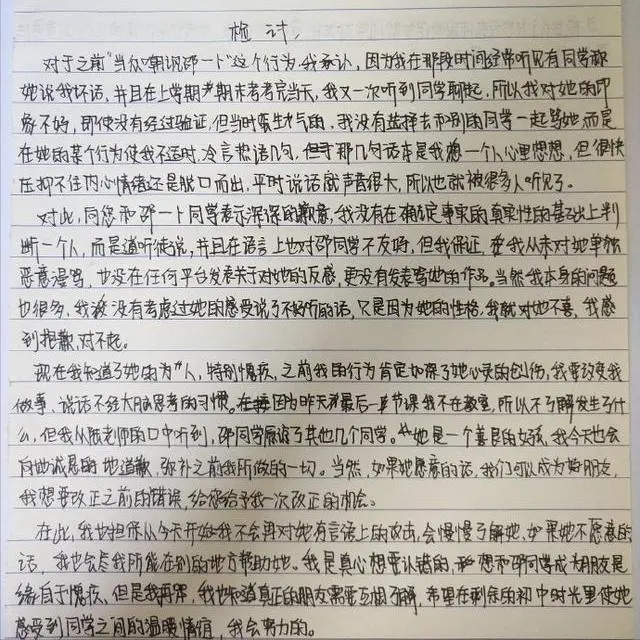 检讨
对于之前“当众嘲讽邵一卜”这个行为,我承认,因为我在那段时间经常听见有同学称
她说我坏话,并且在上学期期末考考完当天,我又一次听到同学聊起,所以我对她的印
象不好,即使没有经过验证,但当时蛮生气的,我没有选择去和别的同学一起骂她,而是
在她的某个行为使我不适时,冷言热语几句,但于那几句话本是我想一个人心里想想,但很快
压抑不住内心情绪还是脱口而出,平时说话就声音很大,所以也就被很多人听见了。
对此,向您和邵一卜同学表示深深的歉意,我没有在确定事实的真实性的基础上判
断一个人,而是道听徒说,并且在语言上也对邵同学不友好,但我保证,我从未对她单独
恶意漫骂,也没在任何平台发表关于对她的反感,更没有发表骂她的作品,当然我本身的问题
也很多,我没有考虑过她的感受说了不好听的话,只是因为她的性格,我就对她不喜,我感
到抱歉,对不起。
现在我知道了她的为人,特别愧疚,之前我的行为肯定加深了她心灵的创伤,我要改变我
做事、说话不经大脑思考的习惯。因为昨天最后一节课我不在教室,所以不了解发生了什
么,但我从陈老师的口中听到,邵同学原谅了其他几个同学。她是一个善良的女孩,我今天也会
向她诚恳地道歉,弥补之前我所做的一切。当然,如果她愿意的话,我们可以成为好朋友,
我想要改正之前的错误,给您给予我一次改正的机会。
在此,我也担保从今天开始我不会再对她有言语上的攻击,会慢慢了解她,如果她不愿意的
话,我也会尽我所能在别的地方帮助她。我是真心想要认错的,想和邵同学成为朋友是
缘自于愧疚,但是我也知道真正的朋友需要互相了解,希望在剩余的初中时光里使她
感受到同学之间的温暖情谊,我会努力的。